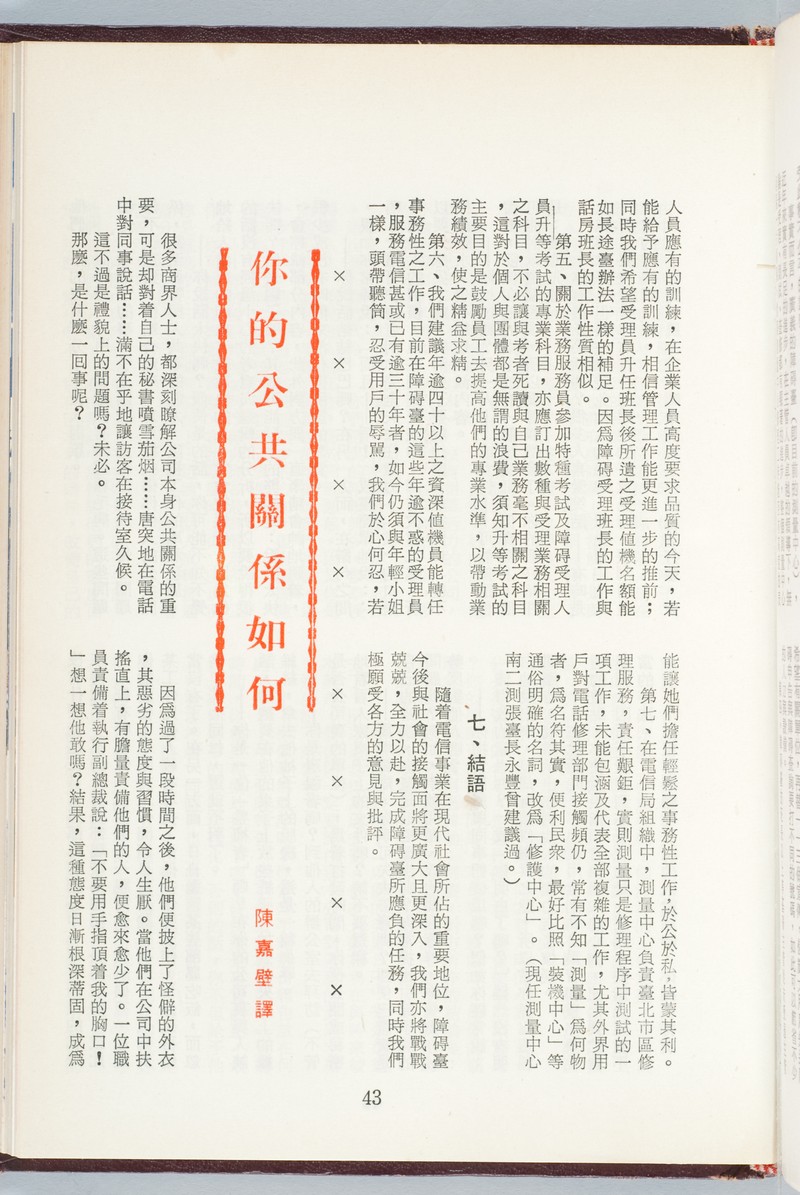 人員應有的訓練，在企業人員高度要求品質的今天，若
能給予應有的訓練，相信管理工作能更進一步的推前；
同時我們希望受理員升任班長後所遺之受理值機名額能
如長途臺辦法一樣的補足。因爲障碍受理班長的工作與
話房班長的工作性質相似。
第五、關於業務服務員參加特種考試及障碍受理人
員升等考試的專業科目，亦應訂出數種與受理業務相關
之科目，不必讓與考者死讀與自己業務毫不相關之科目
，這對於個人與團體都是無謂的浪費，須知升等考試的
主要目的是鼓勵員工去提高他們的專業水準，以帶動業
務績效，使之精益求精。
第六、我們建議年逾四十以上之資深值機員能轉任
事務性之工作，目前在障碍臺的這些年逾不惑的受理員
，服務電信甚或已有逾三十年者，如今仍須與年輕小姐
一樣，頭帶聽筒，忍受用戶的辱罵，我們於心何忍，若
能讓她們擔任輕鬆之事務性工作，於公於私，皆蒙其利。
第七、在電信局組織中，測量中心負責臺北市區修
理服務，責任艱鉅，實則測量只是修理程序中測試的一
項工作，未能包涵及代表全部複雜的工作，尤其外界用
戶對電話修理部門接觸頻仍，常有不知「測量」爲何物
者，爲名符其實，便利民衆，最好比照「裝機中心」等
通俗明確的名詞，改爲「修護中心」。（現任測量中心
南二測張臺長永豐曾建議過。）
七、結語
隨着電信事業在現代社會所佔的重要地位，障碍臺
今後與社會的接觸面將更廣大且更深入，我們亦將戰戰
兢兢，全力以赴，完成障碍臺所應負的任務，同時我們
極願受各方的意見與批評。
× × × × × × × ×
你的公共關係如何
陳嘉壁譯
很多商界人士，都深刻瞭解公司本身公共關係的重
要，可是却對着自己的秘書噴雪茄烟……唐突地在電話
中對同事說話……滿不在乎地讓訪客在接待室久候。
這不過是禮貌上的問題嗎？未必。
那麽，是什麽一回事呢？
因爲過了一段時間之後，他們便披上了怪僻的外衣
，其惡劣的態度與習慣，令人生厭。當他們在公司中扶
搖直上，有膽量責備他們的人，便愈來愈少了。一位職
員責備着執行副總裁說：「不要用手指頂着我的胸口！
」想一想他敢嗎？結果，這種態度日漸根深蒂固，成爲
43